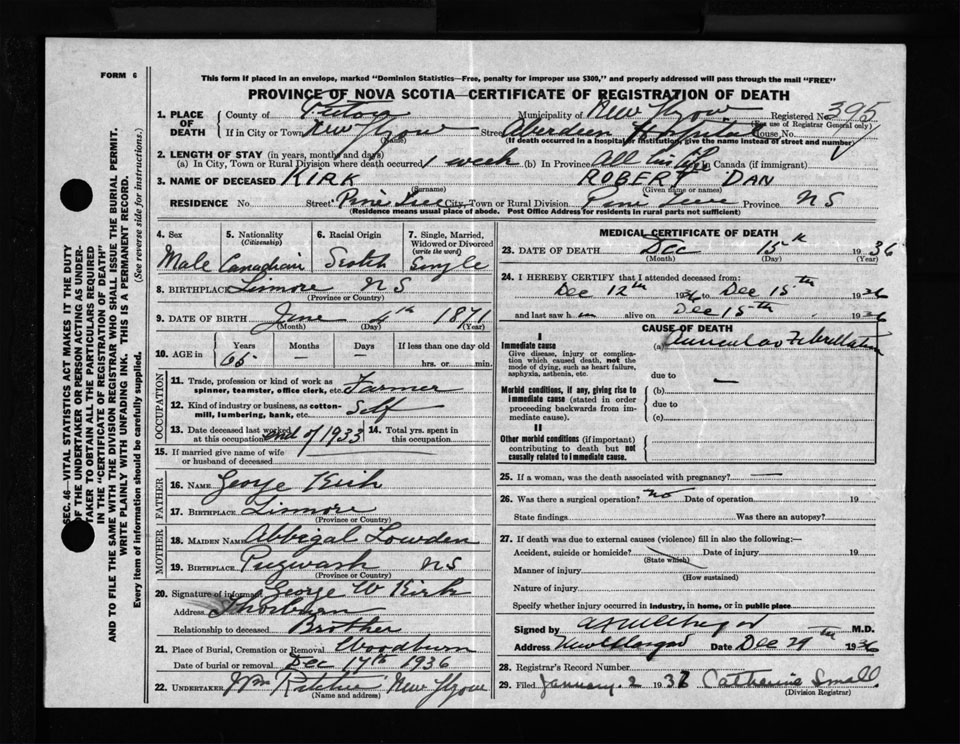 FORM 6
This form if placed in an envelope, marked "Dominion Statistics—Free, penalty for improper use $300," and properly addressed will pass through the mail "FREE"
PROVINCE OF NOVA SCOTIA—CERTIFICATE OF REGISTRATION OF DEATH
1. PLACE OF DEATH County of Pictou Municipality of New Glasgow Registered No. 395
(For use of Registrar General only)
If in City or Town New Glasgow (Name) Street Aberdeen Hospital House No.
(If death occurred in a hospital or institution, give the name instead of street and number)
2. LENGTH OF STAY (in years, months and days)
(a) In City, Town or Rural Division where death occurred 1 week (b) In Province All his life In Canada (if immigrant)
3. NAME OF DECEASED KIRK ROBERT DAN
(Surname) (Given name or names)
RESIDENCE No. Street Pine Tree City, Town or Rural Division Pine Tree Province NS
(Residence means usual place of abode. Post Office Address for residents in rural parts not sufficient)
4. Sex 5. Nationality (Citizenship) 6. Racial Origin 7. Single, Married, Widowed or Divorced (write the word)
Male Canadian Scotch Single
8. BIRTHPLACE Lismore NS
(Province or Country)
9. DATE OF BIRTH June 4th 1871
(Month) (Day) (Year)
10. AGE in Years Months Days If less than one day old
65 — — hrs. or min.
OCCUPATION
11. Trade, profession or kind of work as spinner, teamster, office clerk, etc. Farmer
12. Kind of industry or business, as cotton-mill, lumbering, bank, etc. Self
13. Date deceased last worked at this occupation end of 1933 14. Total yrs. spent in this occupation
15. If married give name of wife or husband of deceased
FATHER
16. NAME George Kirk
17. BIRTHPLACE Lismore
(Province or Country)
MOTHER
18. MAIDEN NAME Abbigal Lowden
19. BIRTHPLACE Pugwash NS
(Province or Country)
20. Signature of informant George W Kirk
Address Thorburn
Relationship to deceased Brother
21. Place of Burial, Cremation or Removal Woodburn
Date of burial or removal Dec 17th 1936
22. UNDERTAKER Wm Ritchie New Glasgow
(Name and address)
MEDICAL CERTIFICATE OF DEATH
23. DATE OF DEATH Dec 15th 1936
(Month) (Day) (Year)
24. I HEREBY CERTIFY that I attended deceased from:
Dec 12th 1936 to Dec 15th 1936
and last saw him alive on Dec 15th 1936
CAUSE OF DEATH
I
Immediate cause (a) Auricular Fibrillation
Give disease, injury or complication which caused death, not the mode of dying, such as heart failure, asphyxia, asthenia, etc.
due to —
Morbid conditions, if any, giving rise to immediate cause (stated in order proceeding backwards from immediate cause).
(b)
due to
(c)
II
Other morbid conditions (if important) contributing to death but not causally related to immediate cause.
25. If a woman, was the death associated with pregnancy? —
26. Was there a surgical operation? no Date of operation 19
State findings Was there an autopsy?
27. If death was due to external causes (violence) fill in also the following:—
Accident, suicide or homicide? Date of injury 19
(State which)
Manner of injury
(How sustained)
Nature of injury
Specify whether injury occurred in industry, in home, or in public place
Signed by M.D.
Address New Glasgow Date Dec 29th 1936
28. Registrar's Record Number
29. Filed January 2 1937 Catherine Small
(Division Registrar)
SEC. 46—VITAL STATISTICS ACT MAKES IT THE DUTY
OF THE UNDERTAKER OR PERSON ACTING AS UNDER-
TAKER TO OBTAIN ALL THE PARTICULARS REQUIRED
IN THE "CERTIFICATE OF REGISTRATION OF DEATH"
AND TO FILE THE SAME WITH THE DIVISION REGISTRAR WHO SHALL ISSUE THE BURIAL PERMIT.
WRITE PLAINLY WITH UNFADING INK. THIS IS A PERMANENT RECORD.
Every item of information should be carefully supplied. (See reverse side for instructions.)